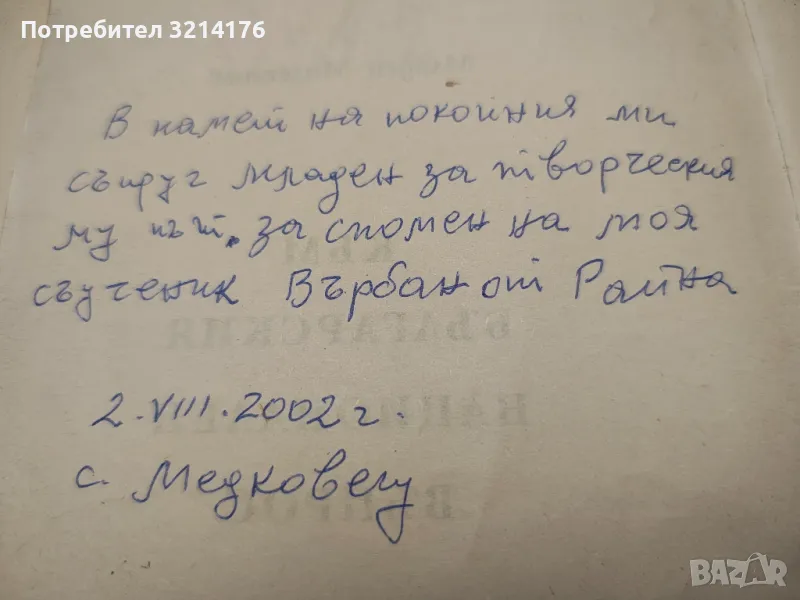 Потребител 3214176
В памет на покойния ми
съпруг Младен за творческия
му път, за спомен на моя
съученик Върбан от Райна
2.VIII.2002 г.
с. Медковец
КЪМ
БЪЛГАРСКИЯ
НАЦИОНАЛЕН
ВЪПРОС
BAZAR